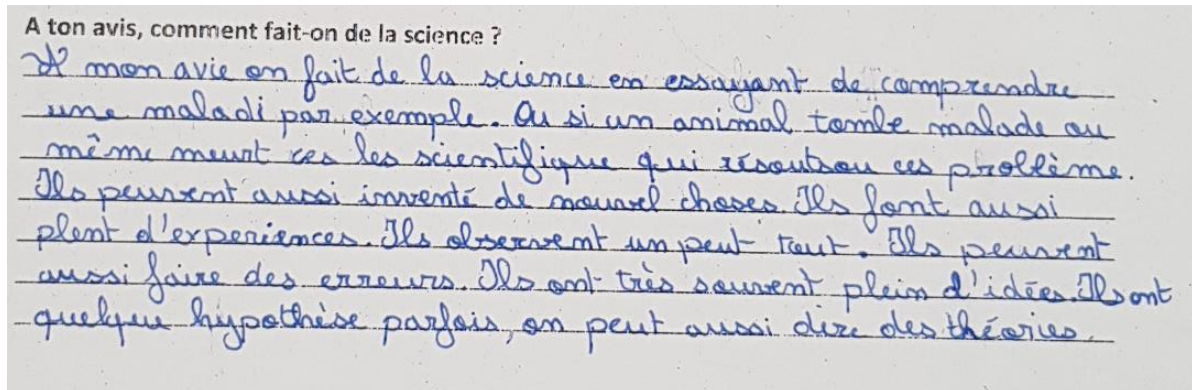 A ton avis, comment fait-on de la science ?
A mon avie on fait de la science en essayant de comprendre
une maladi par exemple. Ou si un animal tombe malade ou
même meurt ces les scientifique qui résoutrou ces problème.
Ils peuvent aussi inventé de nouvel choses. Ils font aussi
plent d'experiences. Ils observent un peut tout. Ils peuvent
aussi faire des erreurs. Ils ont très souvent plein d'idées. Ils ont
quelque hypothèse parfois, on peut aussi dire des théories.